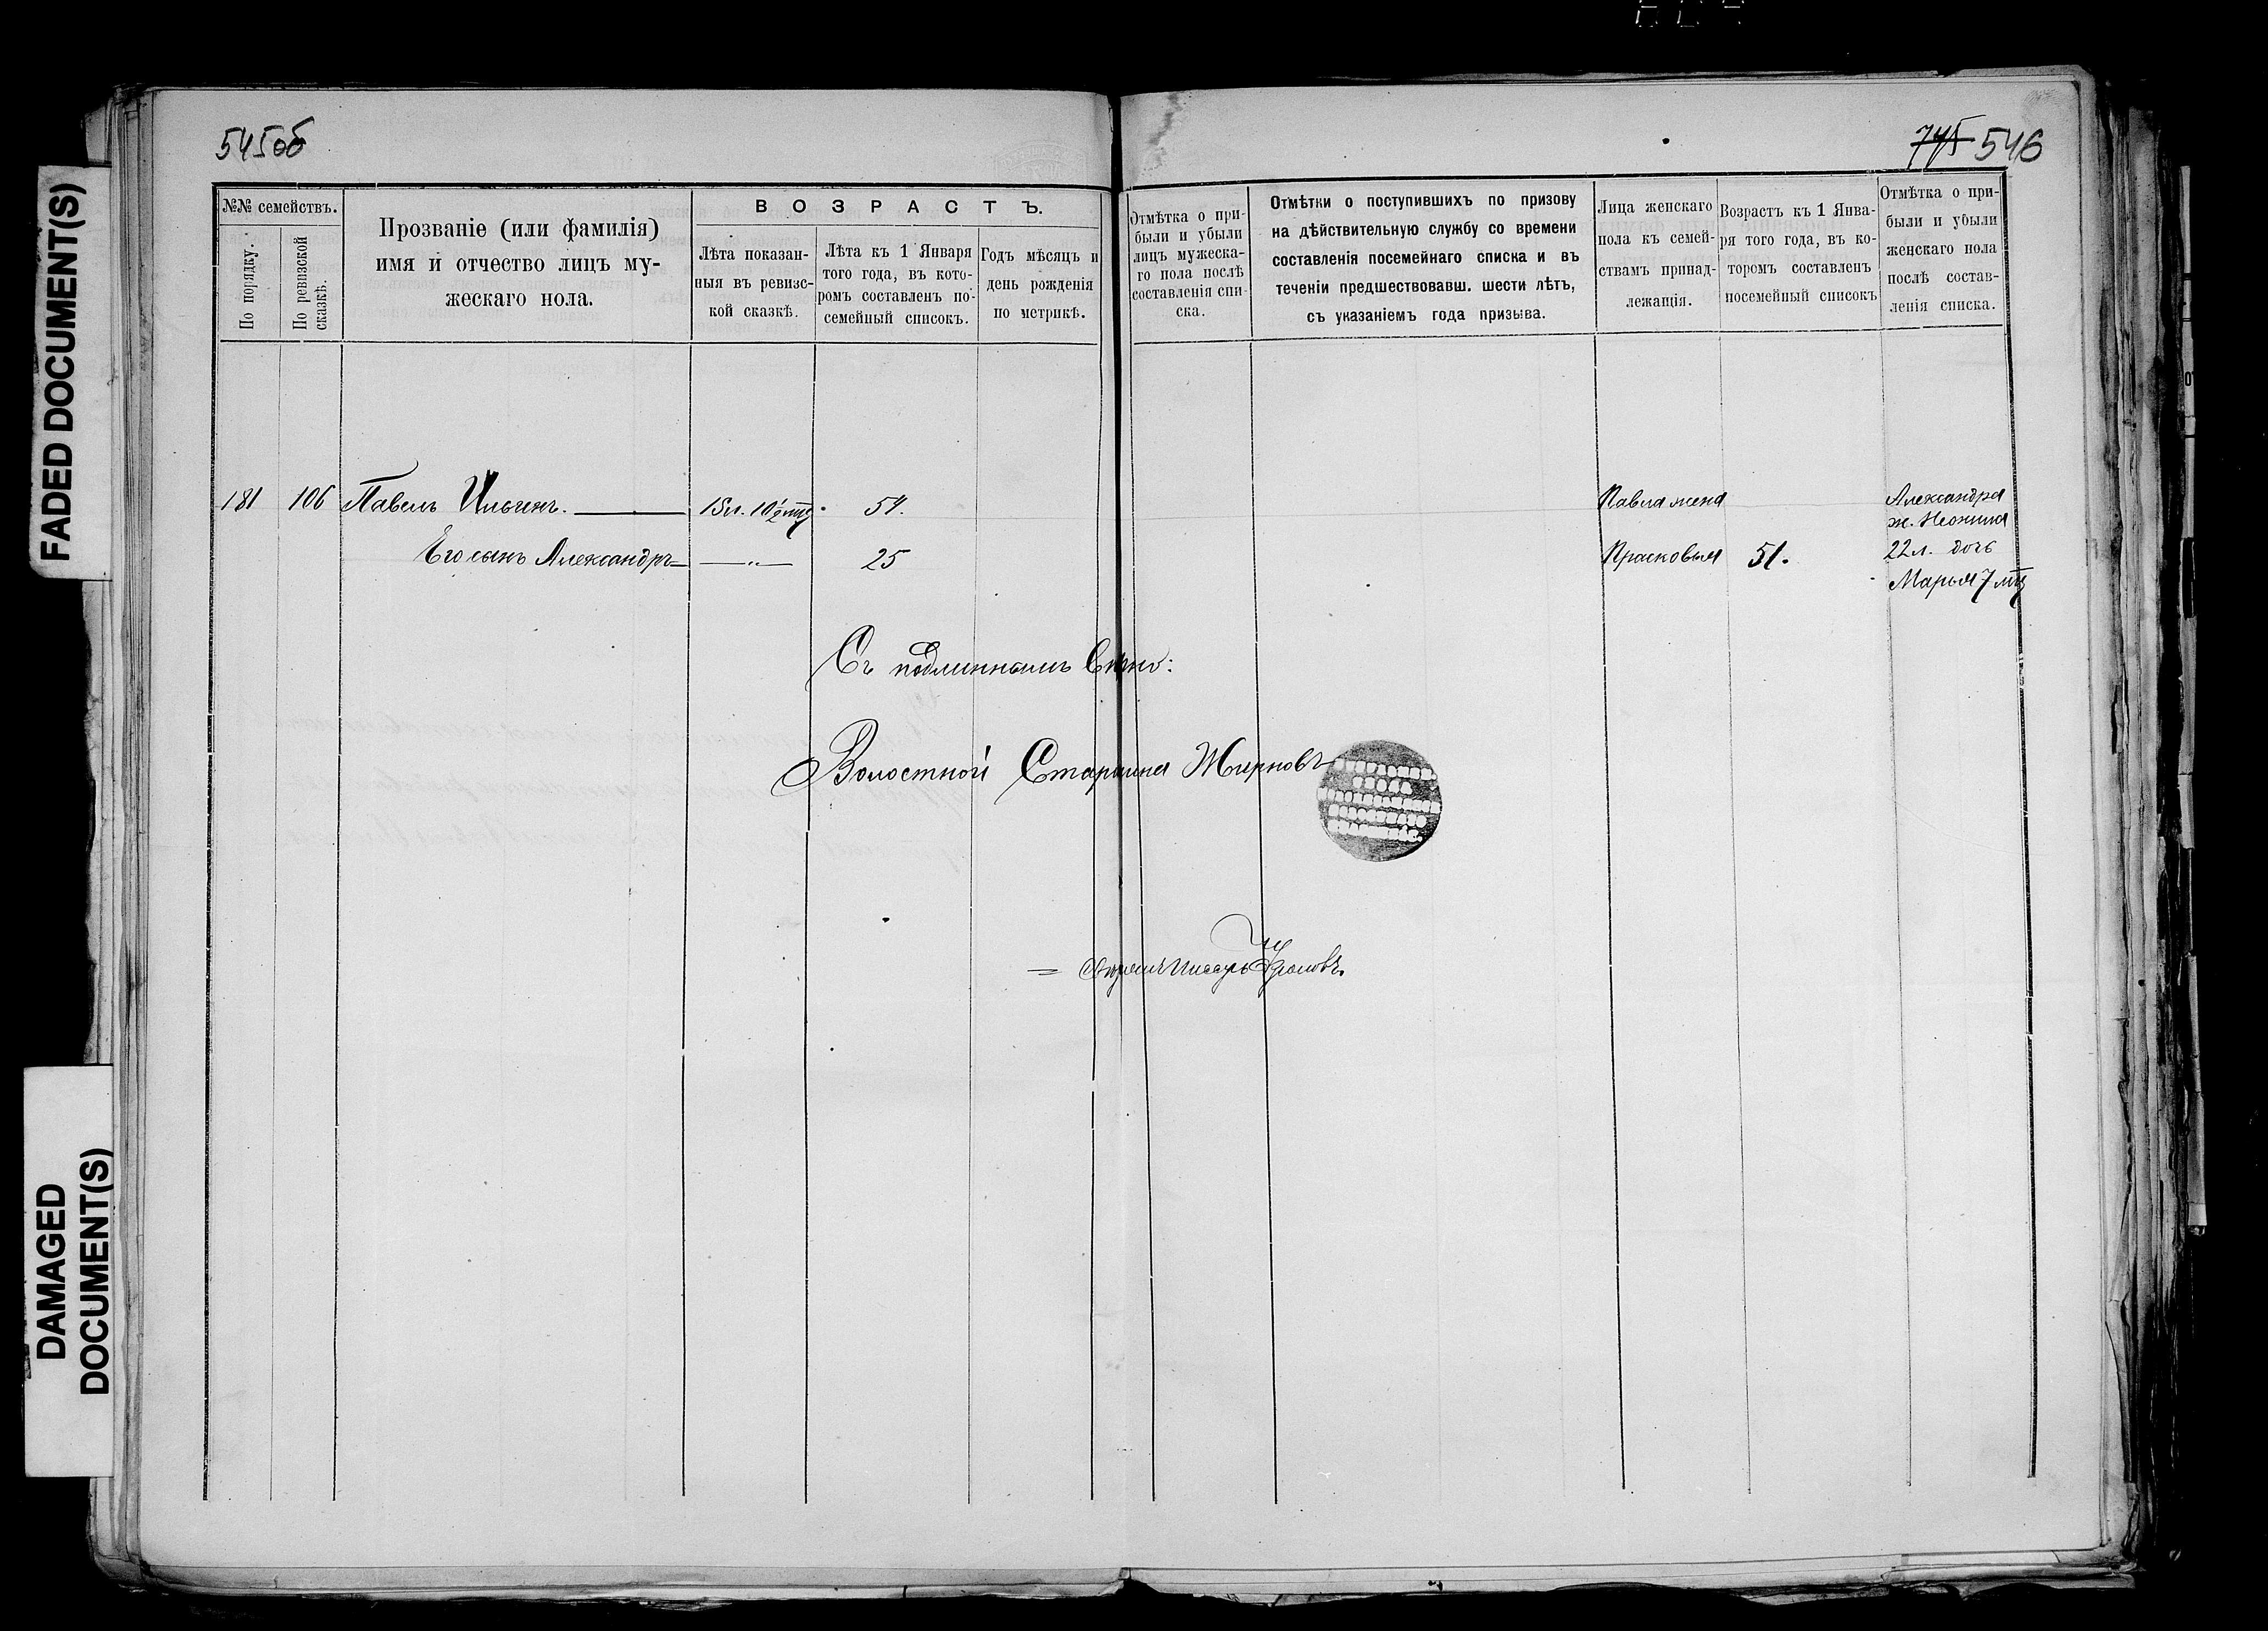 FADED DOCUMENT(S)
DAMAGED
DOCUMENT(S)
545об
745 546
№№ семействъ.
По порядку.
По ревизской
сказкѣ.
Прозваніе (или фамилія)
имя и отчество лицъ му-
жескаго пола.
ВОЗРАСТЪ.
Лѣта показан-
ныя въ ревизс-
кой сказкѣ.
Лѣта къ 1 Января
того года, въ кото-
ромъ составленъ по-
семейный списокъ.
Годъ мѣсяцъ и
день рожденія
по метрикѣ.
Отмѣтка о при-
были и убыли
лицъ мужеска-
го пола послѣ
составленія спи-
ска.
Отмѣтки о поступившихъ по призову
на дѣйствительную службу со времени
составленія посемейнаго списка и въ
теченіи предшествовавш. шести лѣтъ,
съ указаніемъ года призыва.
Лица женскаго
пола къ семей-
ствамъ принад-
лежащія.
Возрастъ къ 1 Янва-
ря того года, въ ко-
торомъ составленъ
посемейный списокъ
Отмѣтка о при-
были и убыли
женскаго пола
послѣ состав-
ленія списка.
181 106 Павелъ Ильинъ. 15л. 10 1/2 мц 54. Павла жена
Его сынъ Александръ — „ — 25 Прасковья 51.
Александра
ж. Неонила
22 л. дочь
Марья 7 мц
Съ подлиннымъ вѣрно:
Волостной Старшина Жирновъ
Писарь